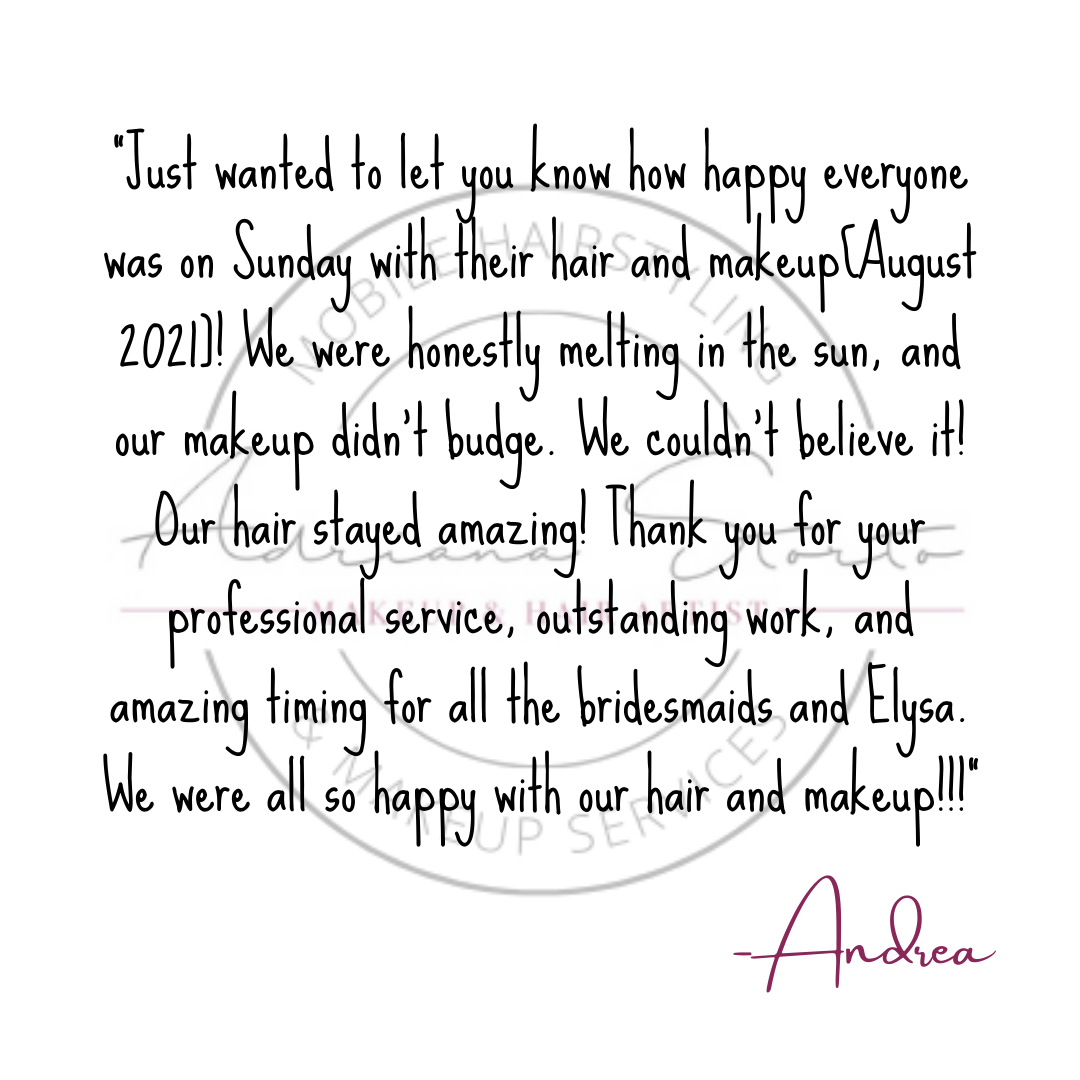 "Just wanted to let you know how happy everyone
was on Sunday with their hair and makeup(August
2021)! We were honestly melting in the sun, and
our makeup didn't budge. We couldn't believe it!
Our hair stayed amazing! Thank you for your
professional service, outstanding work, and
amazing timing for all the bridesmaids and Elysa.
We were all so happy with our hair and makeup!!!"
-Andrea
MOBILE HAIRSTYLING
Adriana Storto
MAKEUP & HAIR ARTIST
& MAKEUP SERVICES